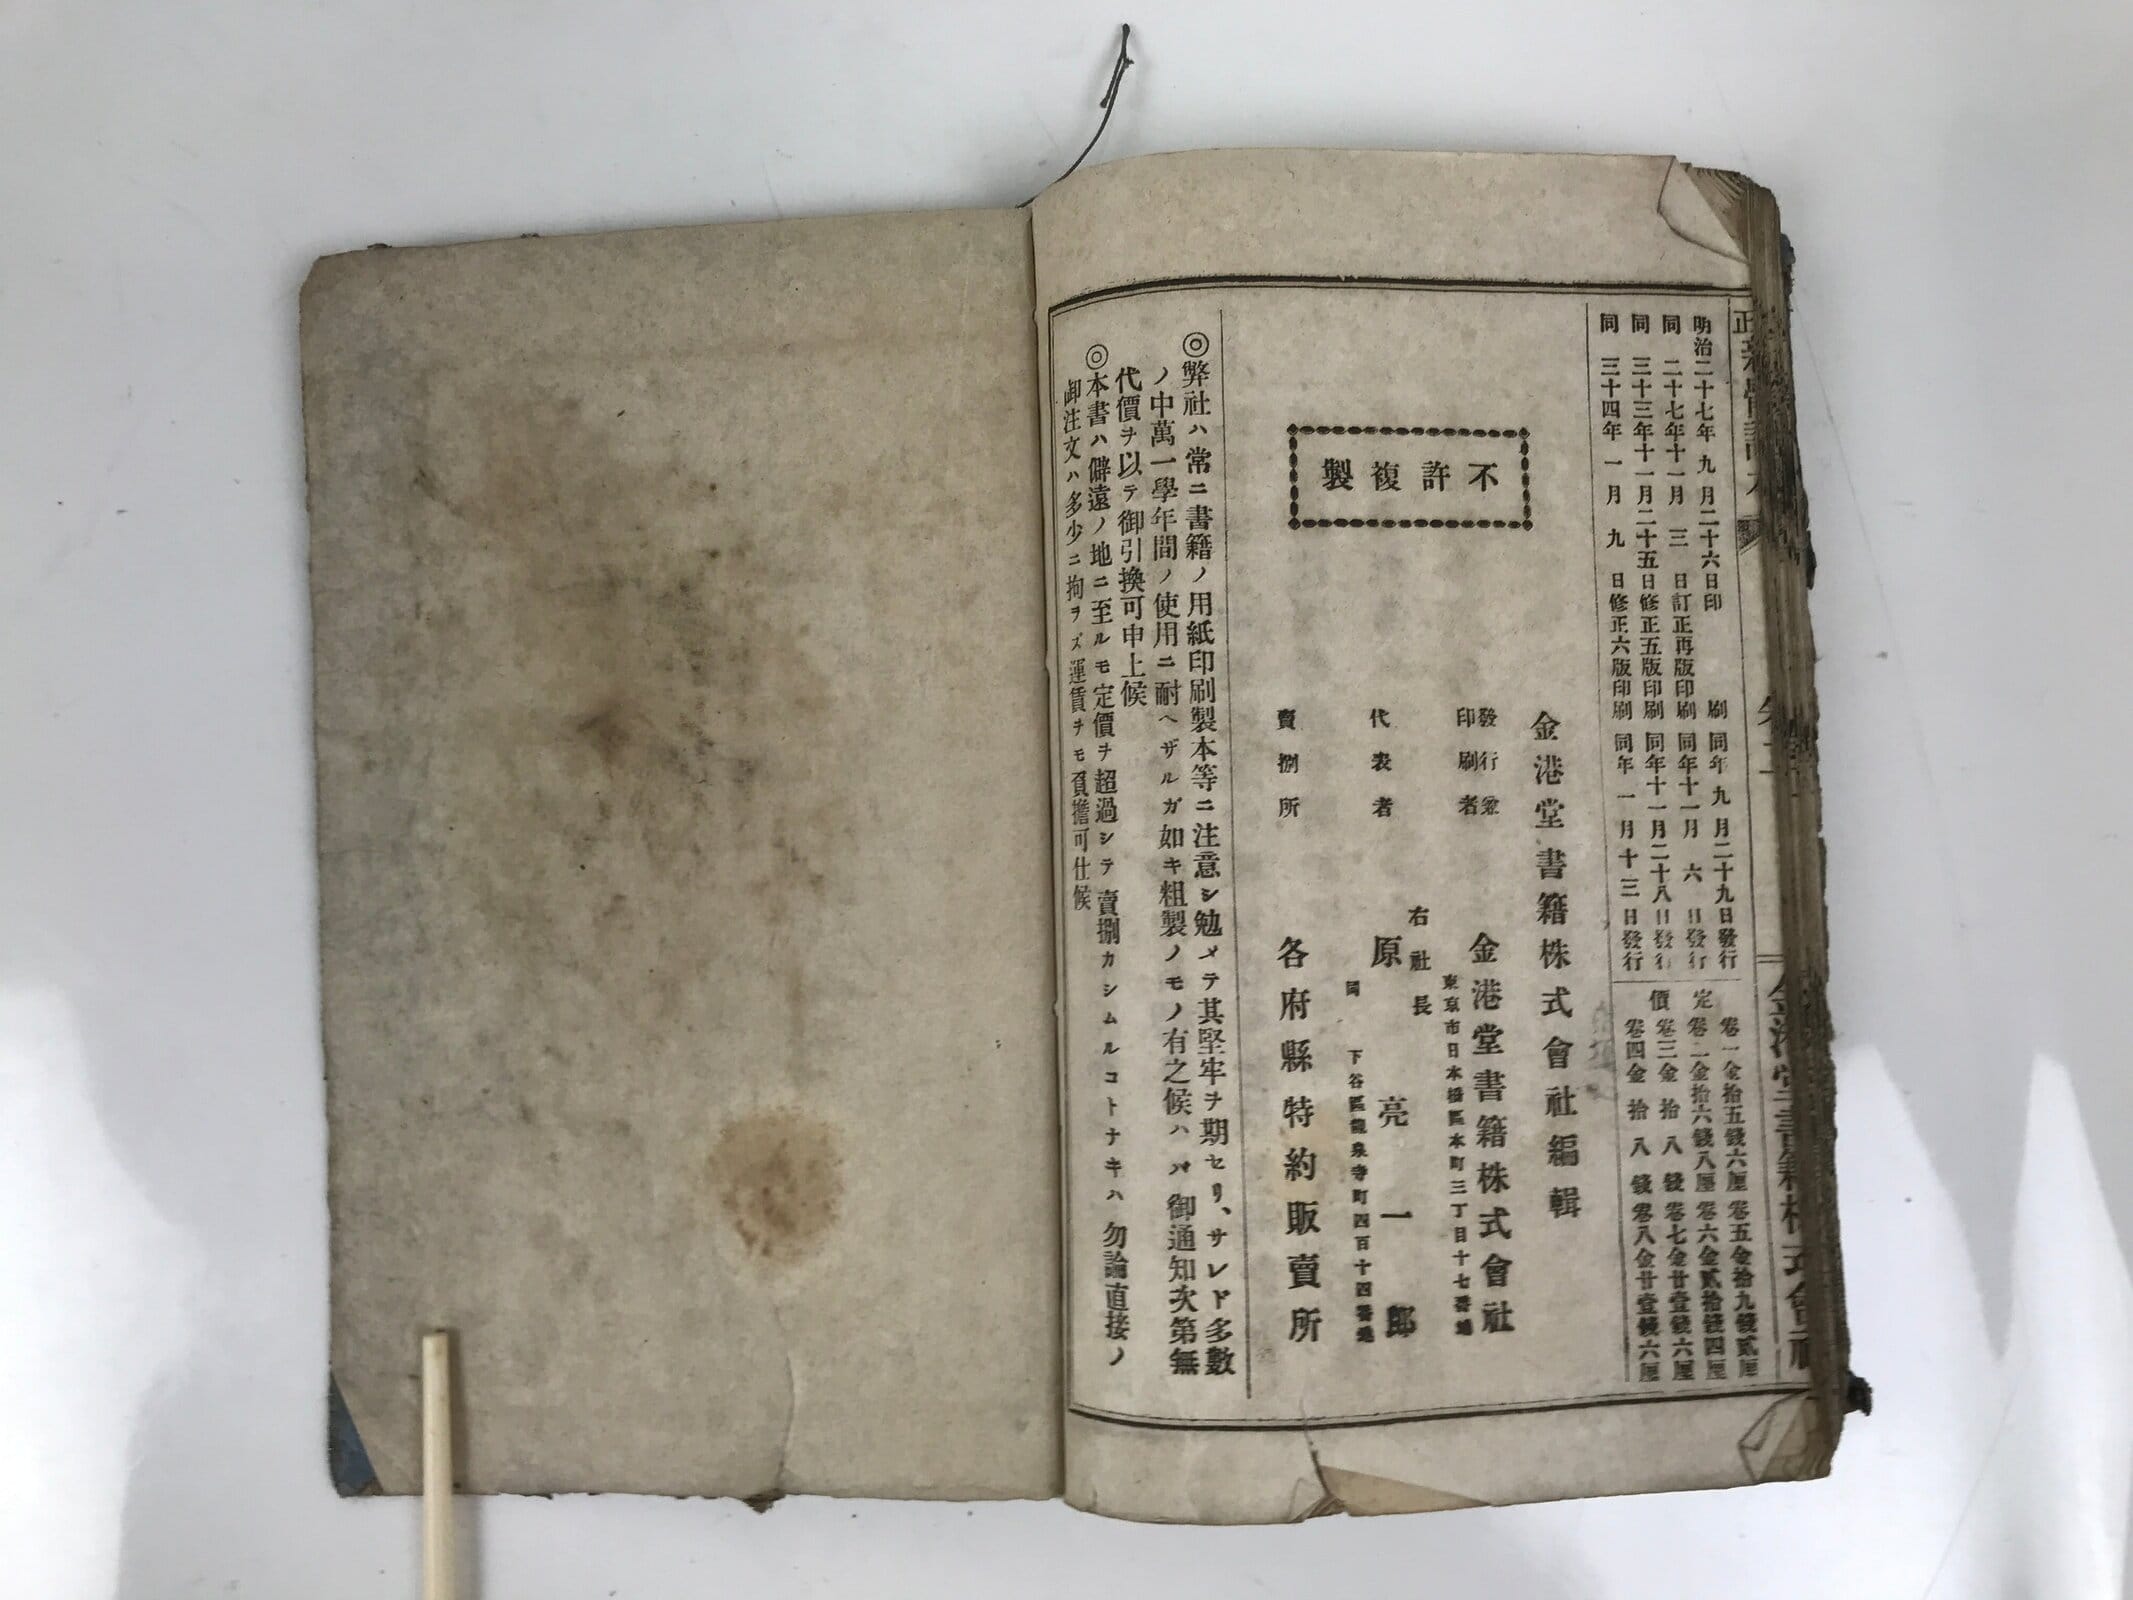 明治二十七年九月二十六日印刷 同年九月二十九日發行
同二十七年十一月三日訂正再版印刷 同年十一月六日發行
同三十三年十一月二十五日修正五版印刷 同年十一月二十八日發行
同三十四年一月九日修正六版印刷 同年一月十三日發行
定價
卷一金拾五錢六厘 卷五金拾九錢貳厘
卷二金拾六錢八厘 卷六金貳拾錢四厘
卷三金拾八錢 卷七金廿壹錢六厘
卷四金拾八錢 卷八金廿壹錢六厘
金港堂書籍株式會社編輯
不許複製
發行兼印刷者 金港堂書籍株式會社
東京市日本橋區本町三丁目十七番地
代表者 右社長 原亮一郎
同 下谷區龍泉寺町四百十四番地
賣捌所 各府縣特約販賣所
◎弊社ハ常ニ書籍ノ用紙印刷製本等ニ注意シ勉メテ其堅牢ヲ期セリ、サレド多數
ノ中萬一學年間ノ使用ニ耐ヘザルガ如キ粗製ノモノ有之候ハヾ御通知次第無
代價ヲ以テ御引換可申上候
◎本書ハ僻遠ノ地ニ至ルモ定價ヲ超過シテ賣捌カシムルコトナキハ勿論直接ノ
御注文ハ多少ニ拘ラズ運賃ヲモ負擔可仕候